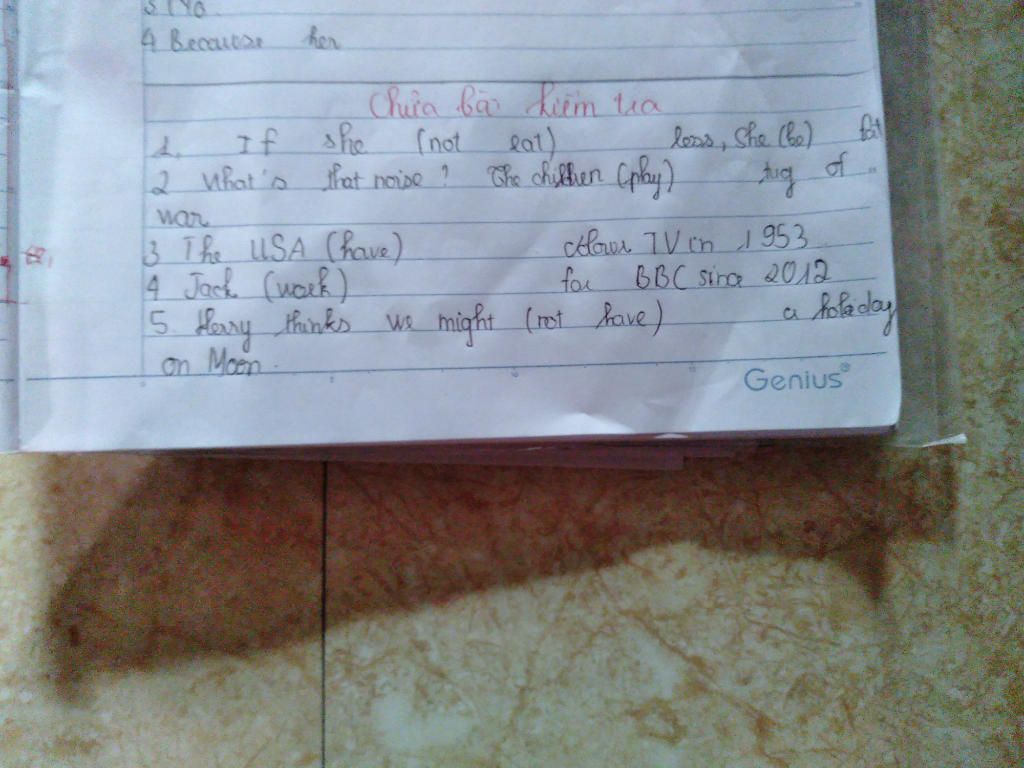 4 Because her
Chữa bài kiểm tra
1. If she (not eat) less, She (be) fat
2 What's that noise? The children (play) tug of
war
3 The USA (have) colour TV in 1953
4 Jack (work) for BBC since 2012
5. Henry thinks we might (not have) a holiday
on Moon.
Genius